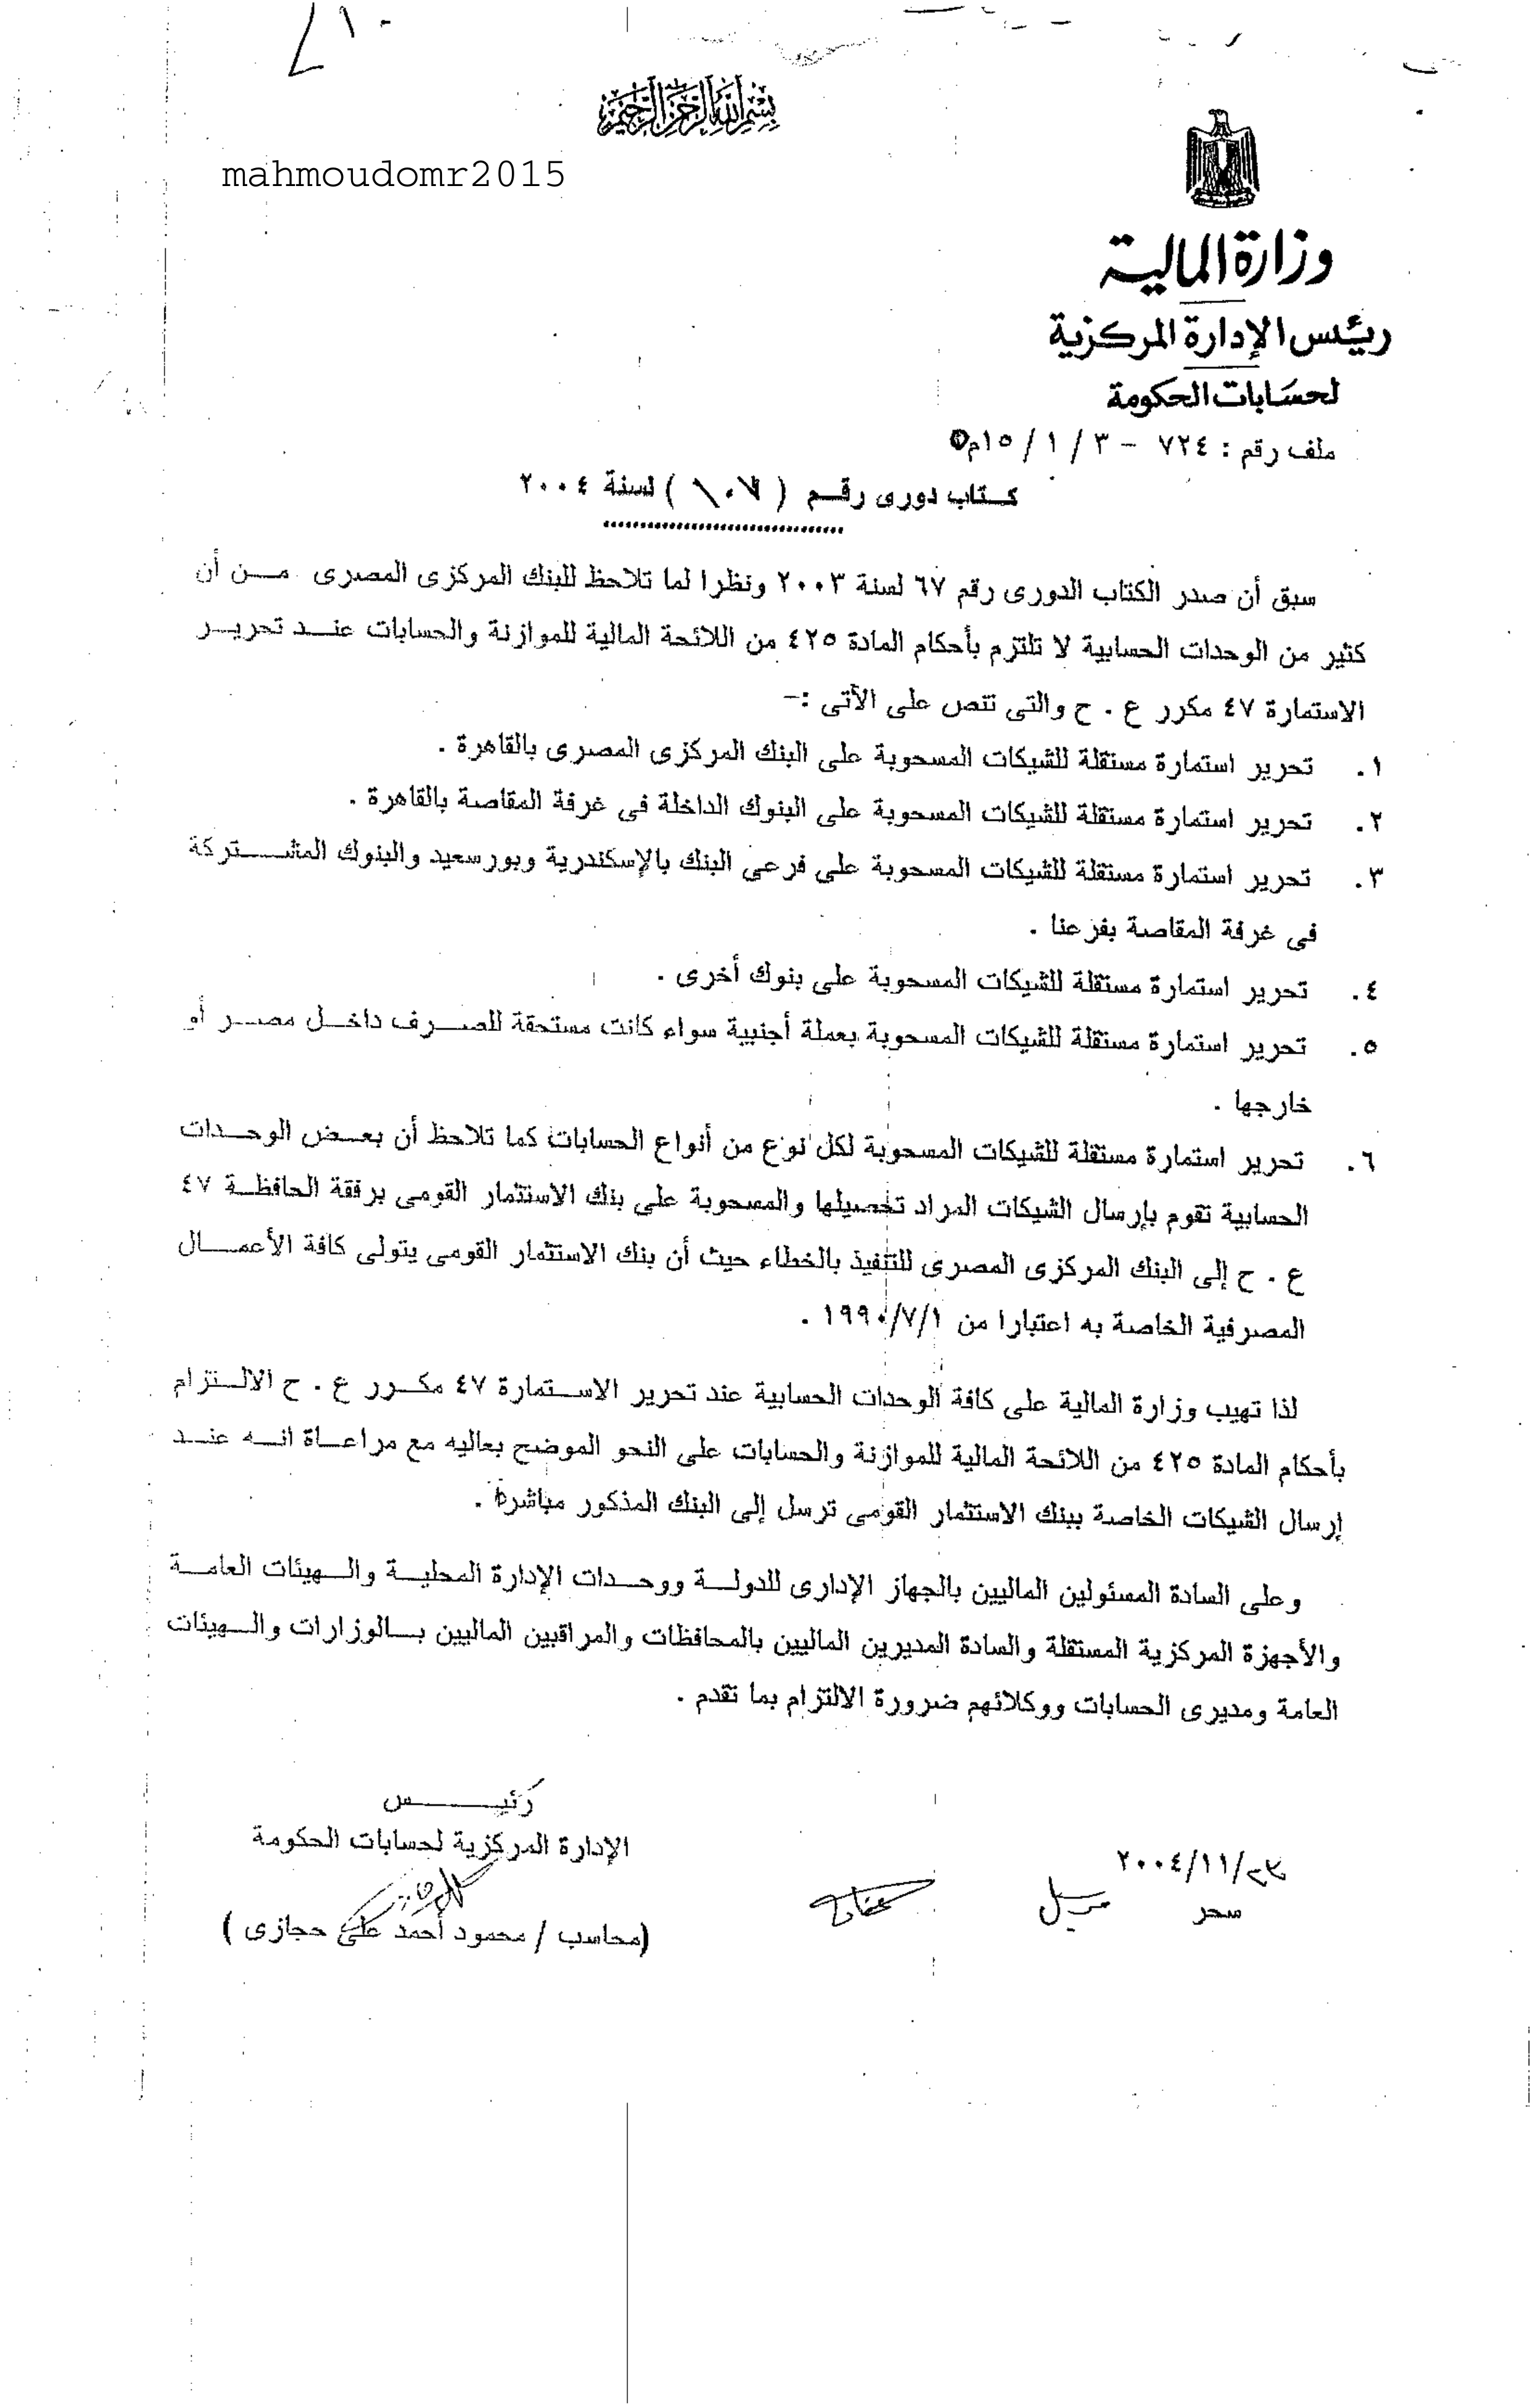 بسم الله الرحمن الرحيم
mahmoudomr2015
وزارة المالية
رئيس الإدارة المركزية
لحسابات الحكومة
ملف رقم : ٧٢٤ - ٣ / ١ / ١٥م
كتاب دورى رقم ( ١٠٧ ) لسنة ٢٠٠٤
سبق أن صدر الكتاب الدورى رقم ٦٧ لسنة ٢٠٠٣ ونظرا لما تلاحظ للبنك المركزى المصرى من أن
كثير من الوحدات الحسابية لا تلتزم بأحكام المادة ٤٢٥ من اللائحة المالية للموازنة والحسابات عند تحرير
الاستمارة ٤٧ مكرر ع . ح والتى تنص على الأتى :-
١. تحرير استمارة مستقلة للشيكات المسحوبة على البنك المركزى المصرى بالقاهرة .
٢. تحرير استمارة مستقلة للشيكات المسحوبة على البنوك الداخلة فى غرفة المقاصة بالقاهرة .
٣. تحرير استمارة مستقلة للشيكات المسحوبة على فرعى البنك بالإسكندرية وبورسعيد والبنوك المشتركة
فى غرفة المقاصة بفرعنا .
٤. تحرير استمارة مستقلة للشيكات المسحوبة على بنوك أخرى .
٥. تحرير استمارة مستقلة للشيكات المسحوبة بعملة أجنبية سواء كانت مستحقة للصرف داخل مصر أو
خارجها .
٦. تحرير استمارة مستقلة للشيكات المسحوبة لكل نوع من أنواع الحسابات كما تلاحظ أن بعض الوحدات
الحسابية تقوم بإرسال الشيكات المراد تحصيلها والمسحوبة على بنك الاستثمار القومى برفقة الحافظة ٤٧
ع . ح إلى البنك المركزى المصرى للتنفيذ بالخطاء حيث أن بنك الاستثمار القومى يتولى كافة الأعمال
المصرفية الخاصة به اعتبارا من ١٩٩٠/٧/١ .
لذا تهيب وزارة المالية على كافة الوحدات الحسابية عند تحرير الاستمارة ٤٧ مكرر ع . ح الالتزام
بأحكام المادة ٤٢٥ من اللائحة المالية للموازنة والحسابات على النحو الموضح بعاليه مع مراعاة انه عند
إرسال الشيكات الخاصة ببنك الاستثمار القومى ترسل إلى البنك المذكور مباشرة .
وعلى السادة المسئولين الماليين بالجهاز الإدارى للدولة ووحدات الإدارة المحلية والهيئات العامة
والأجهزة المركزية المستقلة والسادة المديرين الماليين بالمحافظات والمراقبين الماليين بالوزارات والهيئات
العامة ومديرى الحسابات ووكلائهم ضرورة الالتزام بما تقدم .
رئيس
الإدارة المركزية لحسابات الحكومة
(محاسب / محمود أحمد على حجازى )
/١١/٢٠٠٤
سحر